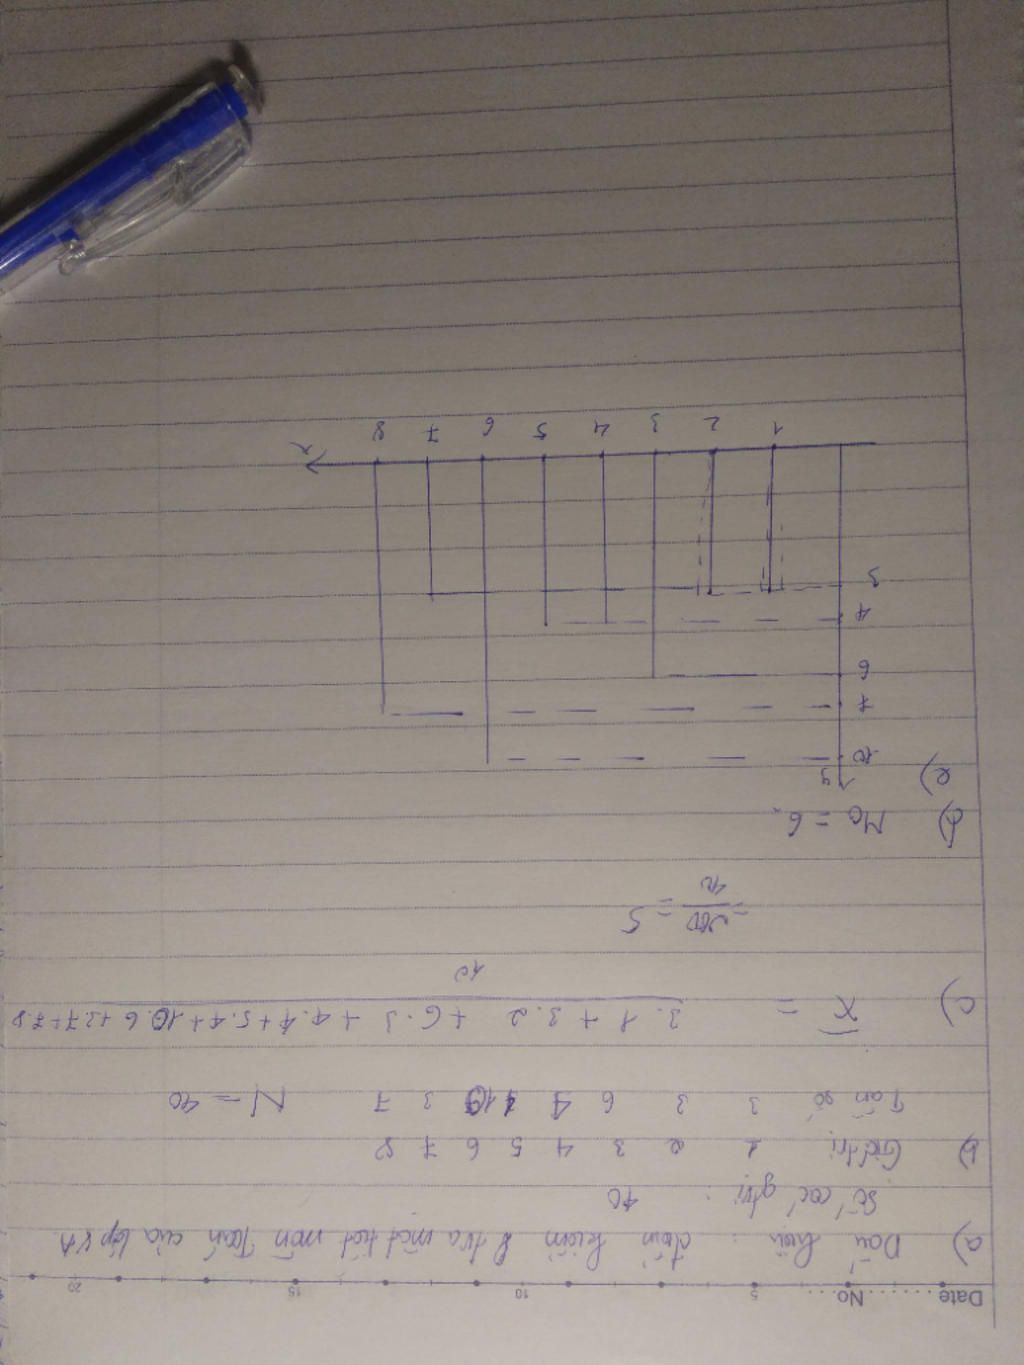 Date No 5 10 15 20
a) Dấu hiệu : điểm kiểm tra một tiết môn Toán của lớp 8A
Số các gtrị : 40
b) Giá trị 1 2 3 4 5 6 7 8
Tần số 3 3 6 4 4 10 3 7 N = 40
c) X̄ = 3.1 + 3.2 + 6.3 + 4.4 + 5.4 + 10.6 + 3.7 + 7.8
40
= 200/40 = 5
d) M₀ = 6
e) y
10
7
6
4
3
1 2 3 4 5 6 7 8 x